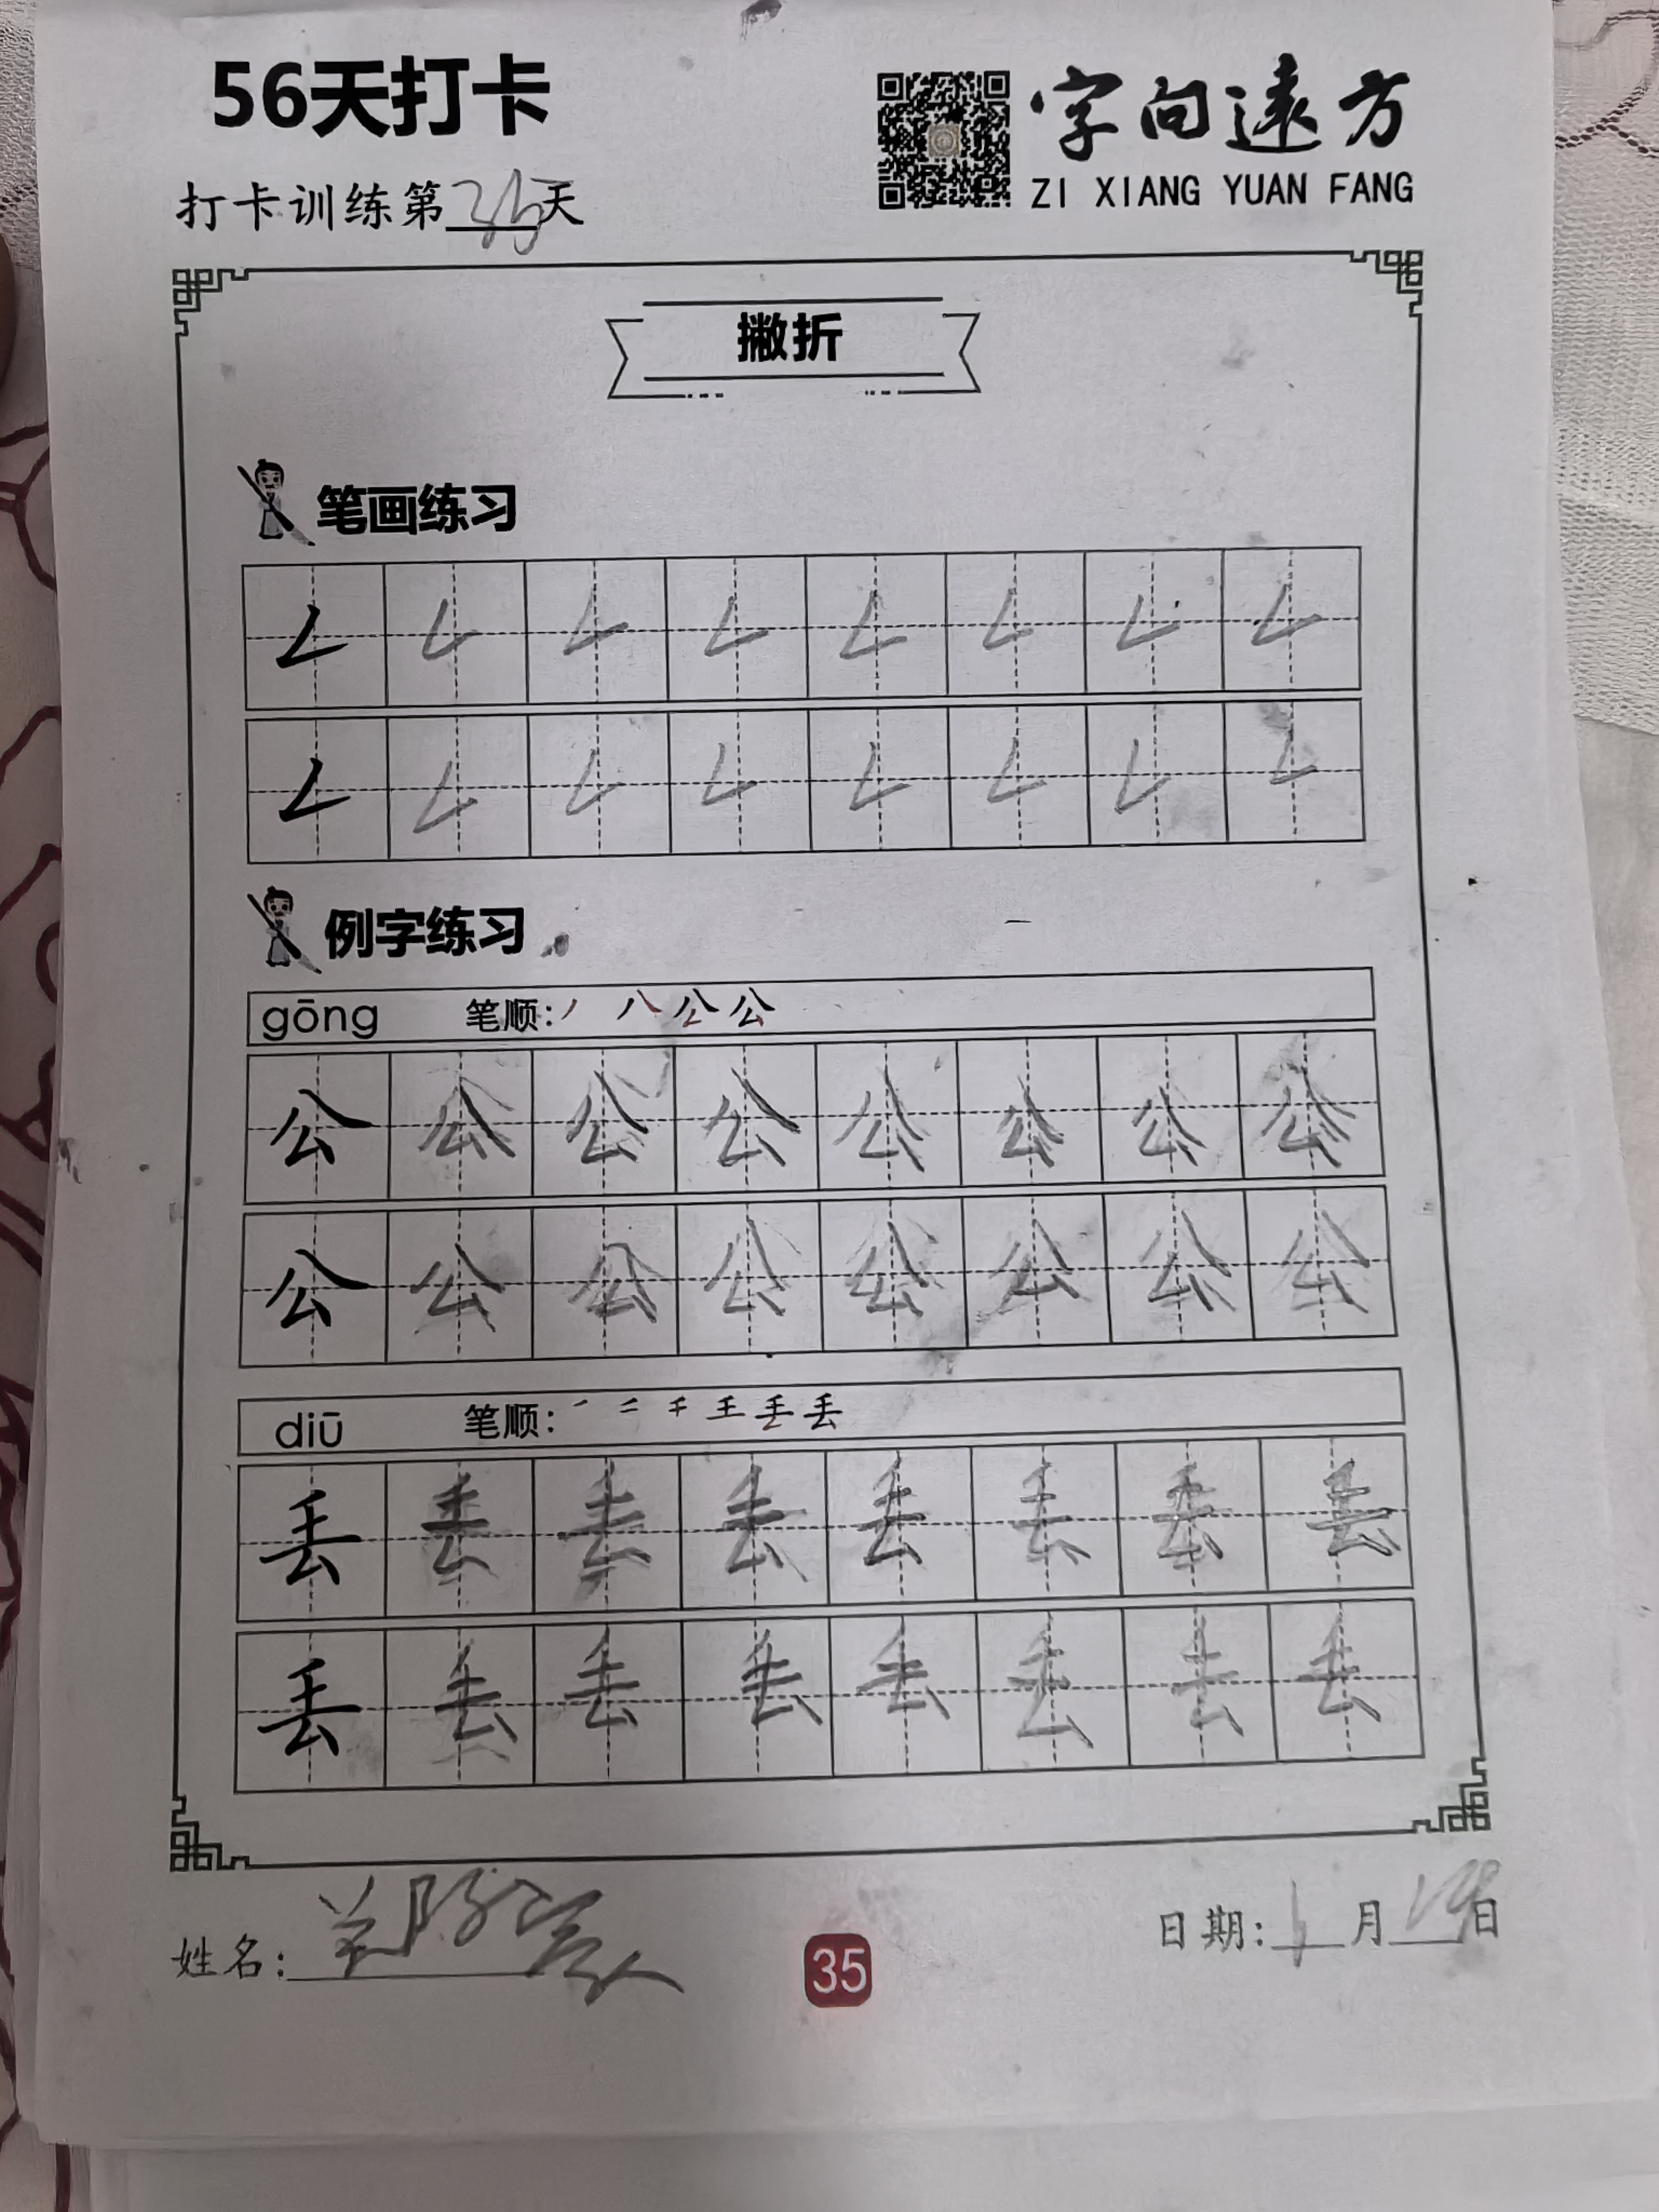 56天打卡
字向遠方
ZI XIANG YUAN FANG
打卡训练第35天
撇折
笔画练习
例字练习
gōng 笔顺: 丿 八 公 公
公 公 公 公 公 公 公 公
公 公 公 公 公 公 公 公
diū 笔顺: 丢 丢
丢 丢 丢 丢 丢 丢 丢 丢
丢 丢 丢 丢 丢 丢 丢 丢
姓名:
35
日期: 1月19日